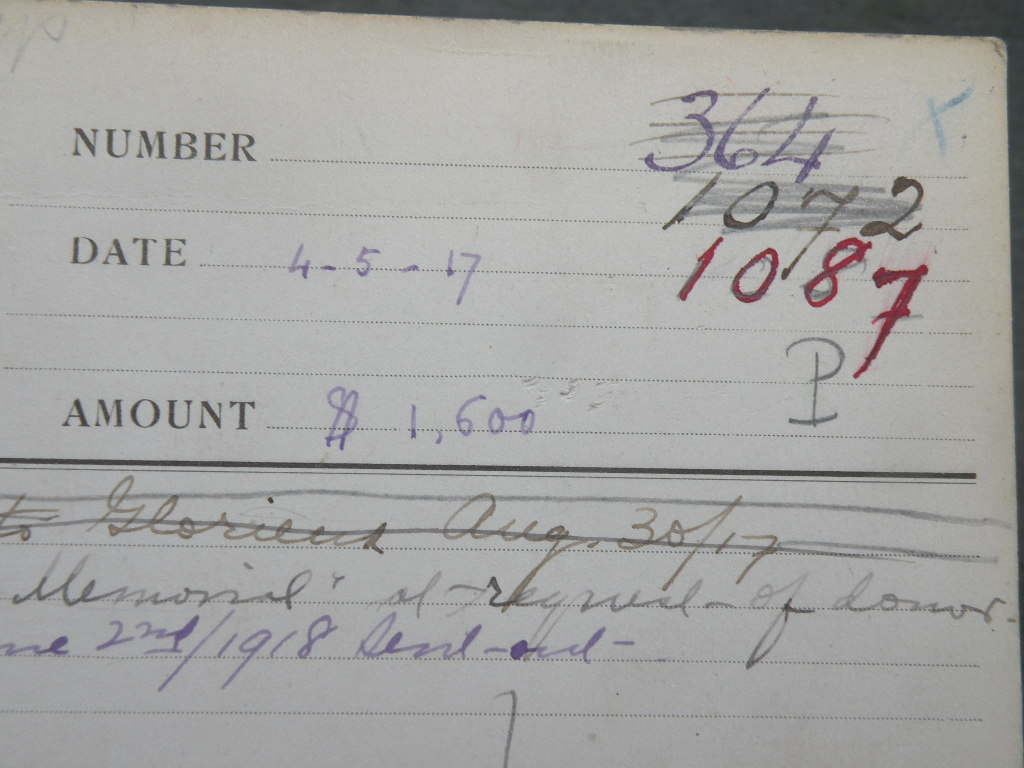 NUMBER 364
1072
DATE 4-5-17 1087
P
AMOUNT $ 1,600
to Glorieux Aug. 30/17
Memorial" at request of donor.
2nd/1918 Send-out-